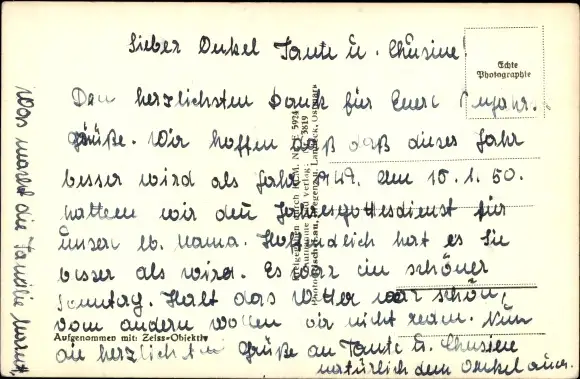 Lieber Onkel Tante u. Cusine!
Echte
Photographie
Den herzlichsten Dank für Eure Neujahr.
grüße. Wir hoffen daß dieses Jahr
besser wird als Jahr 1949. Am 15.1.50.
hatten wir den Jahresgottesdienst für
unsere lb. Mama. Hoffendlich hat es Sie
besser als wird. Es war ein schöner
Sonntag. Halt das Wetter war schön,
vom andern wollen wir nicht reden. Nun
Aufgenommen mit: Zeiss-Objektiv
die herzlichsten Grüße an Tante u. Cusine
natürlich dem Onkel auch.
Was macht die Familie